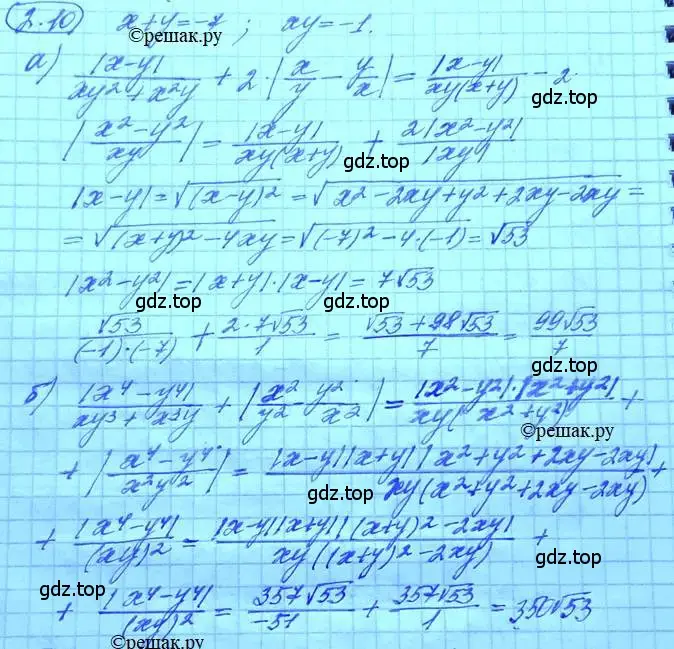 2.10) x+y=-7 ; xy=-1.
©reшак.ру
а) |x-y|/(xy²+x²y) + 2·|x/y - y/x| = |x-y|/(xy(x+y)) - 2·
гдз.top
|(x²-y²)/(xy)| = |x-y|/(xy(x+y)) + 2|x²-y²|/|xy|
гдз.top
|x-y|=√((x-y)²) = √(x²-2xy+y²+2xy-2xy) =
= √((x+y)²-4xy) = √((-7)²-4·(-1)) = √53
|x²-y²|=|x+y|·|x-y|= 7√53
гдз.top гдз.top
√53/((-1)·(-7)) + 2·7√53/1 = (√53+98√53)/7 = 99√53/7
гдз.top
б) |x⁴-y⁴|/(xy³+x³y) + |x²/y² - y²/x²| = |x²-y²|·|x²+y²|/(xy(x²+y²)) +
©reшак.ру
+ |(x⁴-y⁴)/(x²y²)| = |x-y||x+y||x²+y²+2xy-2xy|/(xy(x²+y²+2xy-2xy)) +
гдз.top
+ |x⁴-y⁴|/(xy)² = |x-y||x+y||(x+y)²-2xy|/(xy((x+y)²-2xy)) +
гдз.top
гдз.top
+ |x⁴-y⁴|/(xy)² = 357√53/-51 + 357√53/1 = 350√53
гдз.top
©reшак.ру